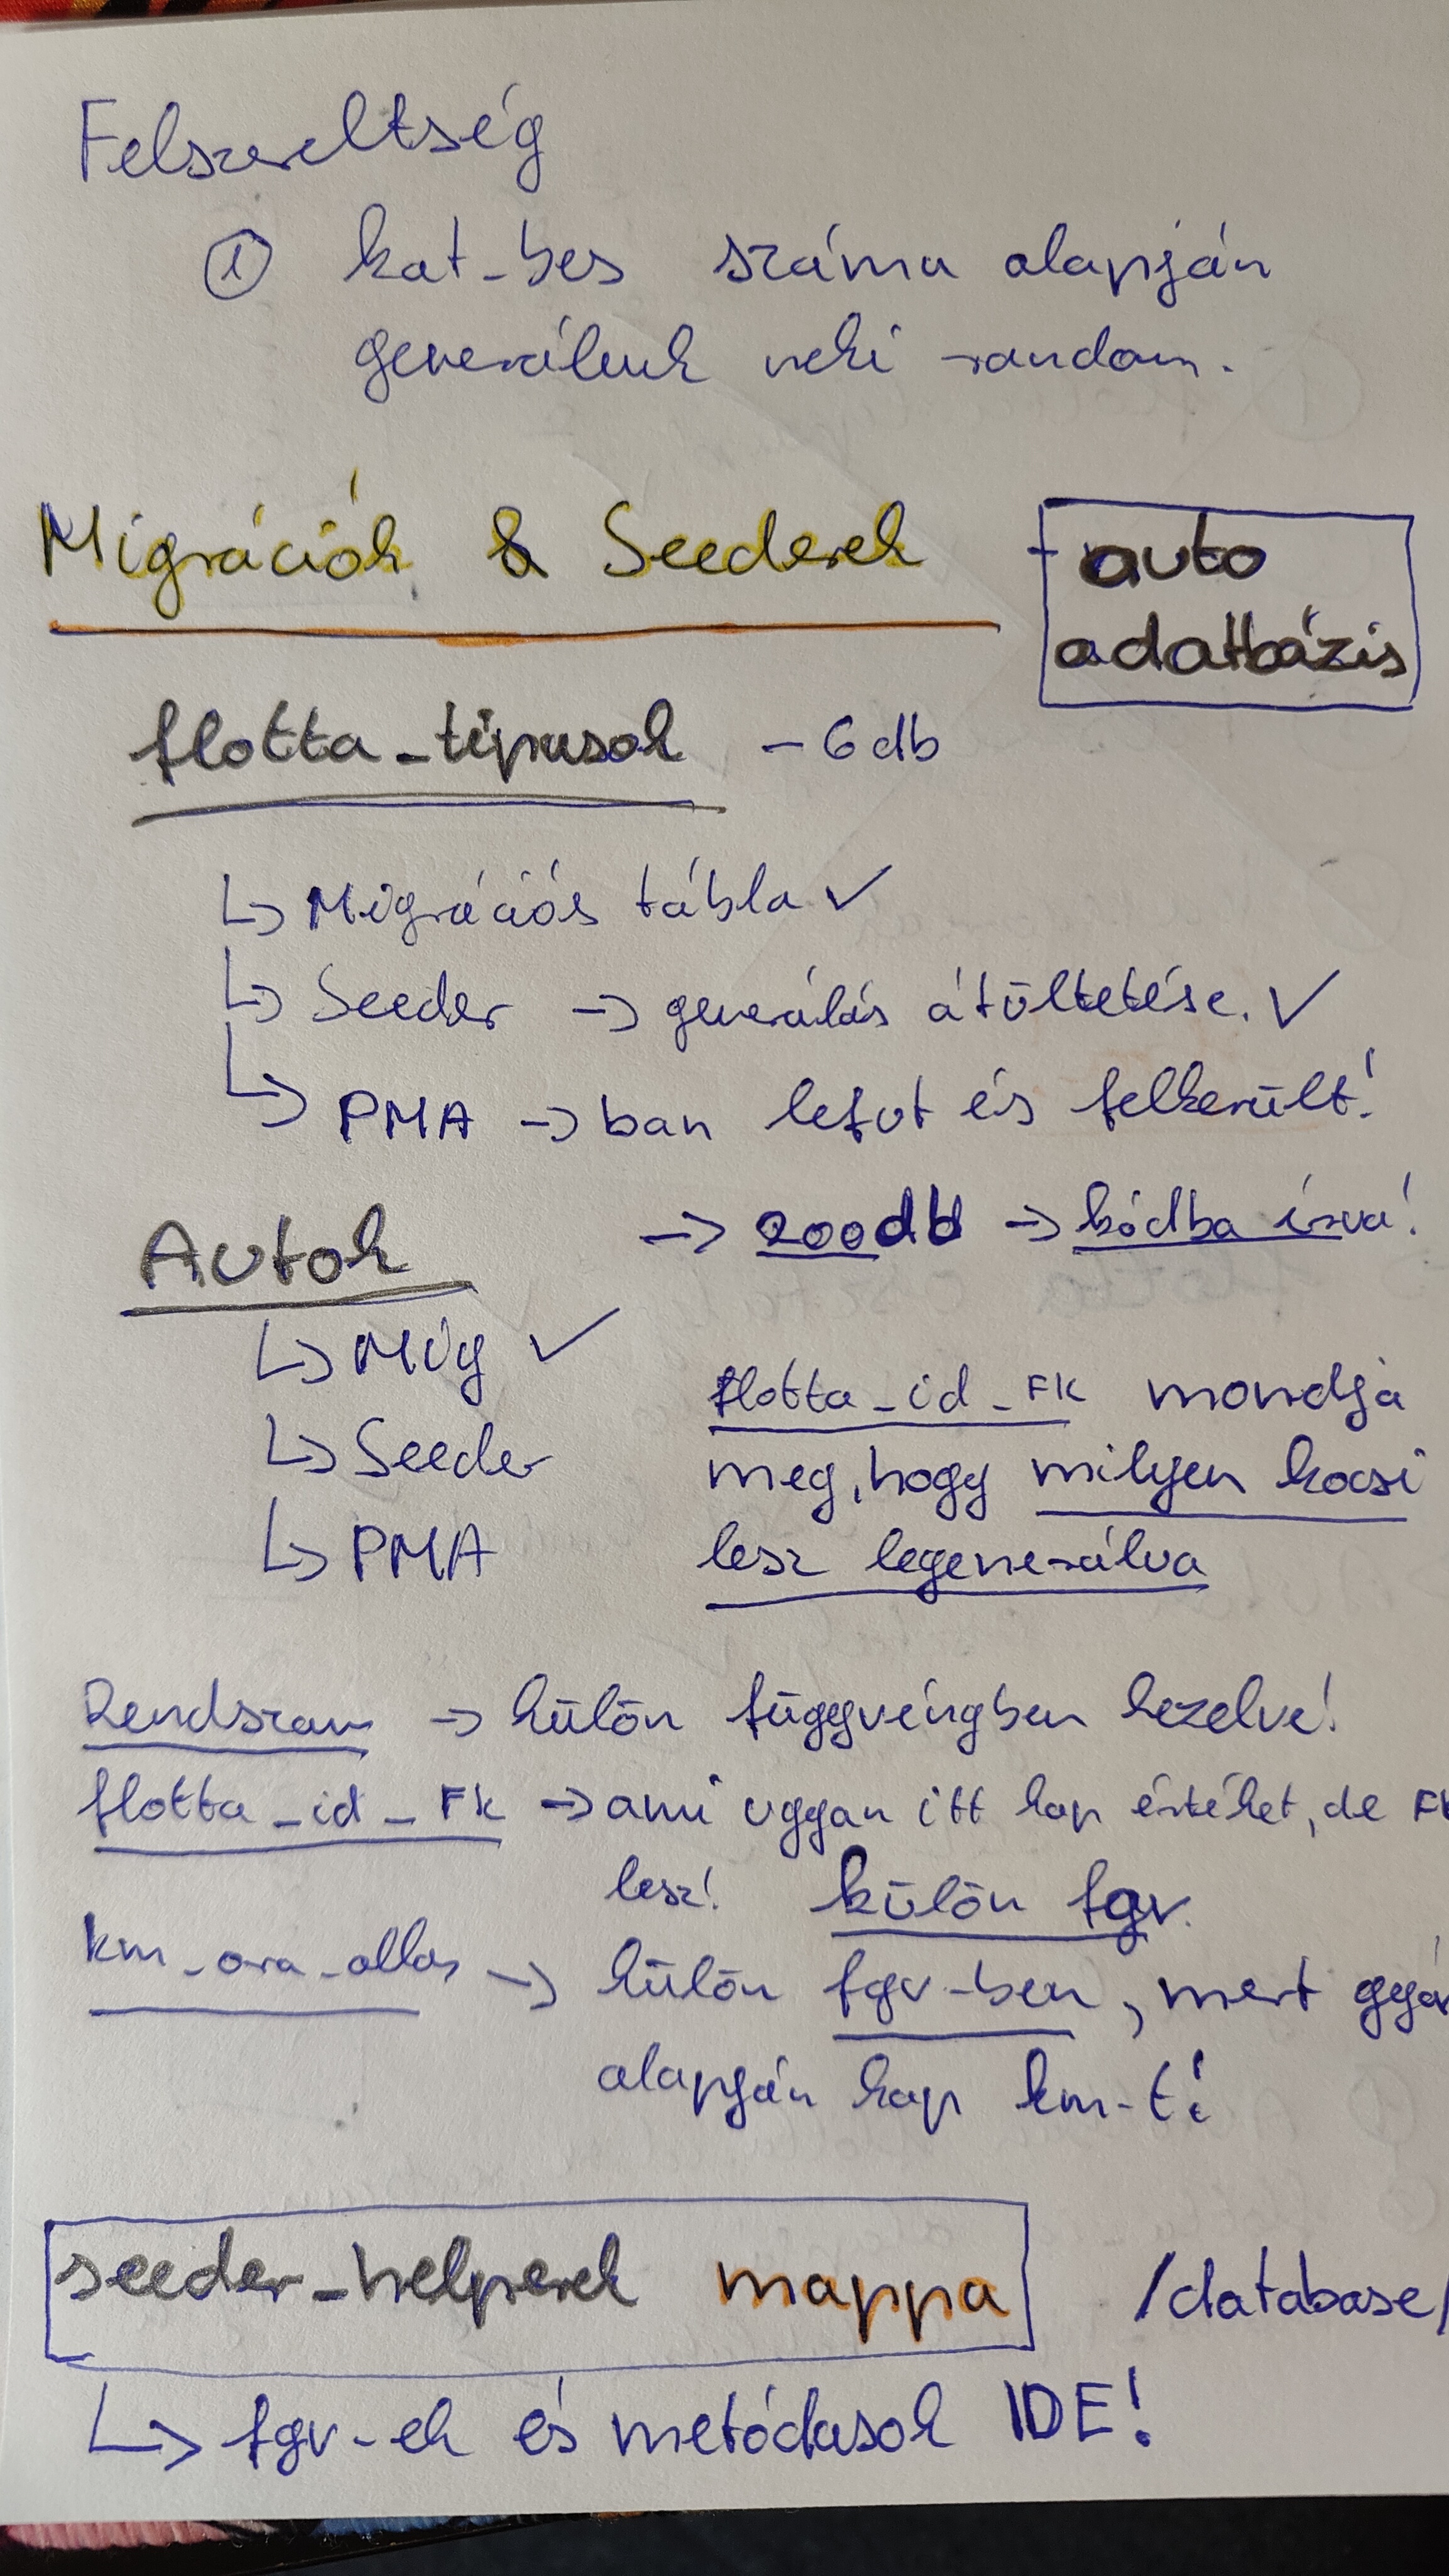 Felszereltség
① kat_bes száma alapján
generálunk neki random.
Migrációk & Seederek
auto
adatbázis
flotta_tipusok - 6 db
↳ Migrációs tábla ✓
↳ Seeder → generálás átültetése. ✓
↳ PMA → ban lefut és felkerült!
Autok → 200db → kódba írva!
↳ Mig ✓
↳ Seeder
↳ PMA
flotta_id_FK mondja
meg, hogy milyen kocsi
lesz legenerálva
Rendszam → külön függvényben kezelve!
flotta_id_FK → ami ugyan itt kap értéket, de FK
lesz! külön fgv.
km_ora_allas → külön fgv-ben, mert gyár
alapján kap km-t!
seeder_helperek mappa /database/
↳ fgv-ek és metódusok IDE!